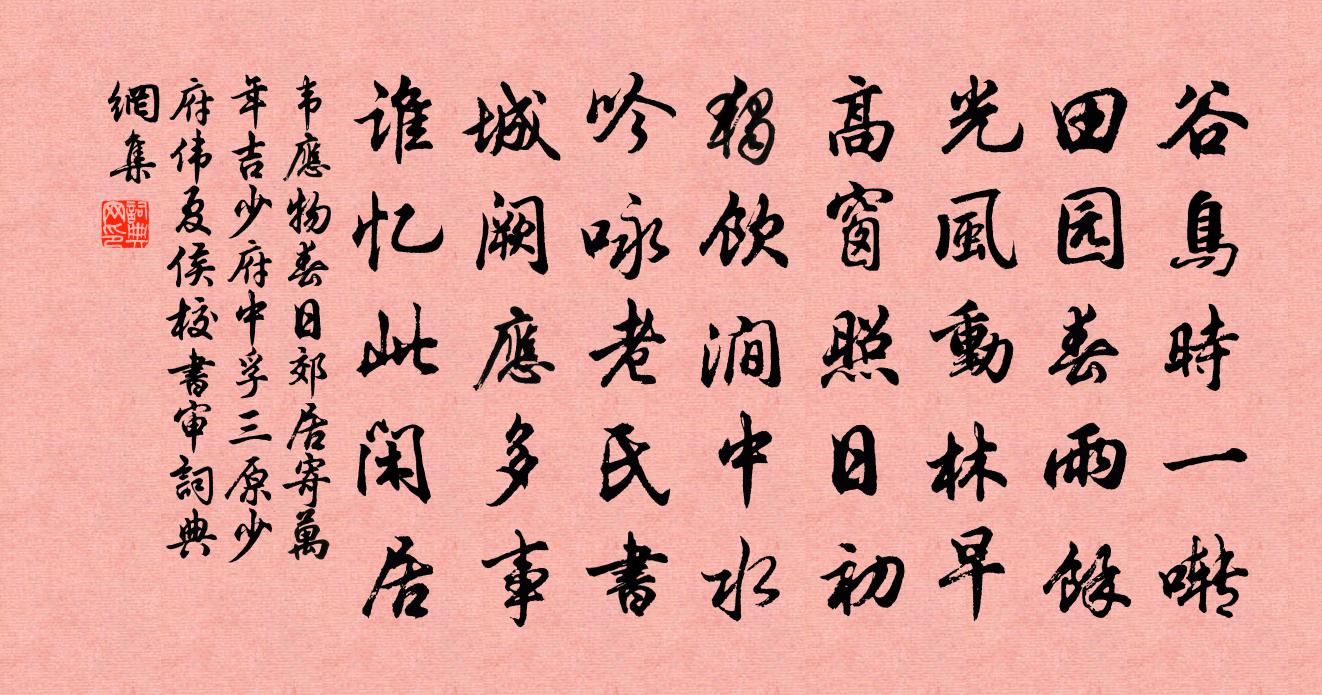 谷鳥時一囀
田园春雨餘
光風動林早
高窗照日初
獨飲澗中水
吟咏老氏書
城阙應多事
谁忆此闲居
韦應物春日郊居寄萬
年吉少府中孚三原少
府伟夏侯校書审詞典
網集